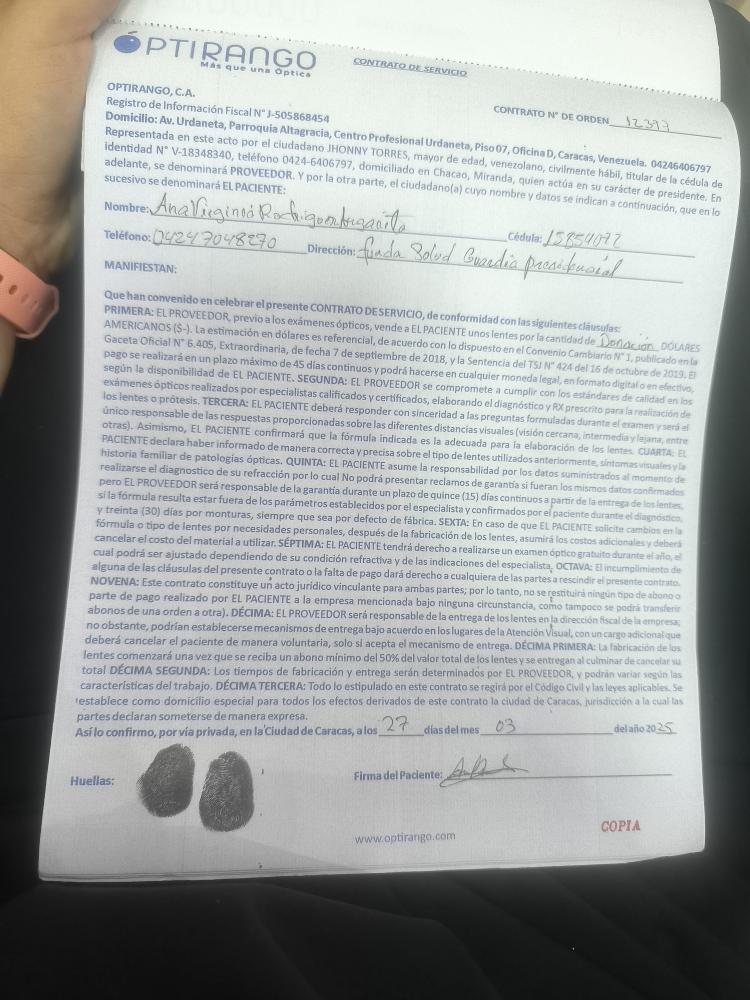 OPTIRANGO
Más que una Óptica
CONTRATO DE SERVICIO
OPTIRANGO, C.A.
Registro de Información Fiscal N° J-505868454
CONTRATO N° DE ORDEN 12397
Domicilio: Av. Urdaneta, Parroquia Altagracia, Centro Profesional Urdaneta, Piso 07, Oficina D, Caracas, Venezuela. 04246406797
Representada en este acto por el ciudadano JHONNY TORRES, mayor de edad, venezolano, civilmente hábil, titular de la cédula de
identidad N° V-18348340, teléfono 0424-6406797, domiciliado en Chacao, Miranda, quien actúa en su carácter de presidente. En
adelante, se denominará PROVEEDOR. Y por la otra parte, el ciudadano(a) cuyo nombre y datos se indican a continuación, que en lo
sucesivo se denominará EL PACIENTE:
Nombre: Ana Virginia
Cédula: 15854072
Teléfono: 04247048270
Dirección: funda Salud Guardia presidencial
MANIFIESTAN:
Que han convenido en celebrar el presente CONTRATO DE SERVICIO, de conformidad con las siguientes cláusulas:
PRIMERA: EL PROVEEDOR, previo a los exámenes ópticos, vende a EL PACIENTE unos lentes por la cantidad de Donación DÓLARES
AMERICANOS ($-). La estimación en dólares es referencial, de acuerdo con lo dispuesto en el Convenio Cambiario N° 1, publicado en la
Gaceta Oficial N° 6.405, Extraordinaria, de fecha 7 de septiembre de 2018, y la Sentencia del TSJ N° 424 del 16 de octubre de 2019. El
pago se realizará en un plazo máximo de 45 días continuos y podrá hacerse en cualquier moneda legal, en formato digital o en efectivo,
según la disponibilidad de EL PACIENTE. SEGUNDA: EL PROVEEDOR se compromete a cumplir con los estándares de calidad en los
exámenes ópticos realizados por especialistas calificados y certificados, elaborando el diagnóstico y RX prescrito para la realización de
los lentes o prótesis. TERCERA: EL PACIENTE deberá responder con sinceridad a las preguntas formuladas durante el examen y será el
único responsable de las respuestas proporcionadas sobre las diferentes distancias visuales (visión cercana, intermedia y lejana, entre
otras). Asimismo, EL PACIENTE confirmará que la fórmula indicada es la adecuada para la elaboración de los lentes. CUARTA: EL
PACIENTE declara haber informado de manera correcta y precisa sobre el tipo de lentes utilizados anteriormente, síntomas visuales y la
historia familiar de patologías ópticas. QUINTA: EL PACIENTE asume la responsabilidad por los datos suministrados al momento de
realizarse el diagnostico de su refracción por lo cual No podrá presentar reclamos de garantía si fueran los mismos datos confirmados
pero EL PROVEEDOR será responsable de la garantía durante un plazo de quince (15) días continuos a partir de la entrega de los lentes,
si la fórmula resulta estar fuera de los parámetros establecidos por el especialista y confirmados por el paciente durante el diagnóstico,
y treinta (30) días por monturas, siempre que sea por defecto de fábrica. SEXTA: En caso de que EL PACIENTE solicite cambios en la
fórmula o tipo de lentes por necesidades personales, después de la fabricación de los lentes, asumirá los costos adicionales y deberá
cancelar el costo del material a utilizar. SÉPTIMA: EL PACIENTE tendrá derecho a realizarse un examen óptico gratuito durante el año, el
cual podrá ser ajustado dependiendo de su condición refractiva y de las indicaciones del especialista. OCTAVA: El incumplimiento de
alguna de las cláusulas del presente contrato o la falta de pago dará derecho a cualquiera de las partes a rescindir el presente contrato.
NOVENA: Este contrato constituye un acto jurídico vinculante para ambas partes; por lo tanto, no se restituirá ningún tipo de abono o
parte de pago realizado por EL PACIENTE a la empresa mencionada bajo ninguna circunstancia, como tampoco se podrá transferir
abonos de una orden a otra). DÉCIMA: EL PROVEEDOR será responsable de la entrega de los lentes en la dirección fiscal de la empresa;
no obstante, podrían establecerse mecanismos de entrega bajo acuerdo en los lugares de la Atención Visual, con un cargo adicional que
deberá cancelar el paciente de manera voluntaria, solo si acepta el mecanismo de entrega. DÉCIMA PRIMERA: La fabricación de los
lentes comenzará una vez que se reciba un abono mínimo del 50% del valor total de los lentes y se entregan al culminar de cancelar su
total DÉCIMA SEGUNDA: Los tiempos de fabricación y entrega serán determinados por EL PROVEEDOR, y podrán variar según las
características del trabajo. DÉCIMA TERCERA: Todo lo estipulado en este contrato se regirá por el Código Civil y las leyes aplicables. Se
establece como domicilio especial para todos los efectos derivados de este contrato la ciudad de Caracas, jurisdicción a la cual las
partes declaran someterse de manera expresa.
Así lo confirmo, por vía privada, en la Ciudad de Caracas, a los 27 días del mes 03 del año 2025
Huellas:
Firma del Paciente:
COPIA
www.optirango.com